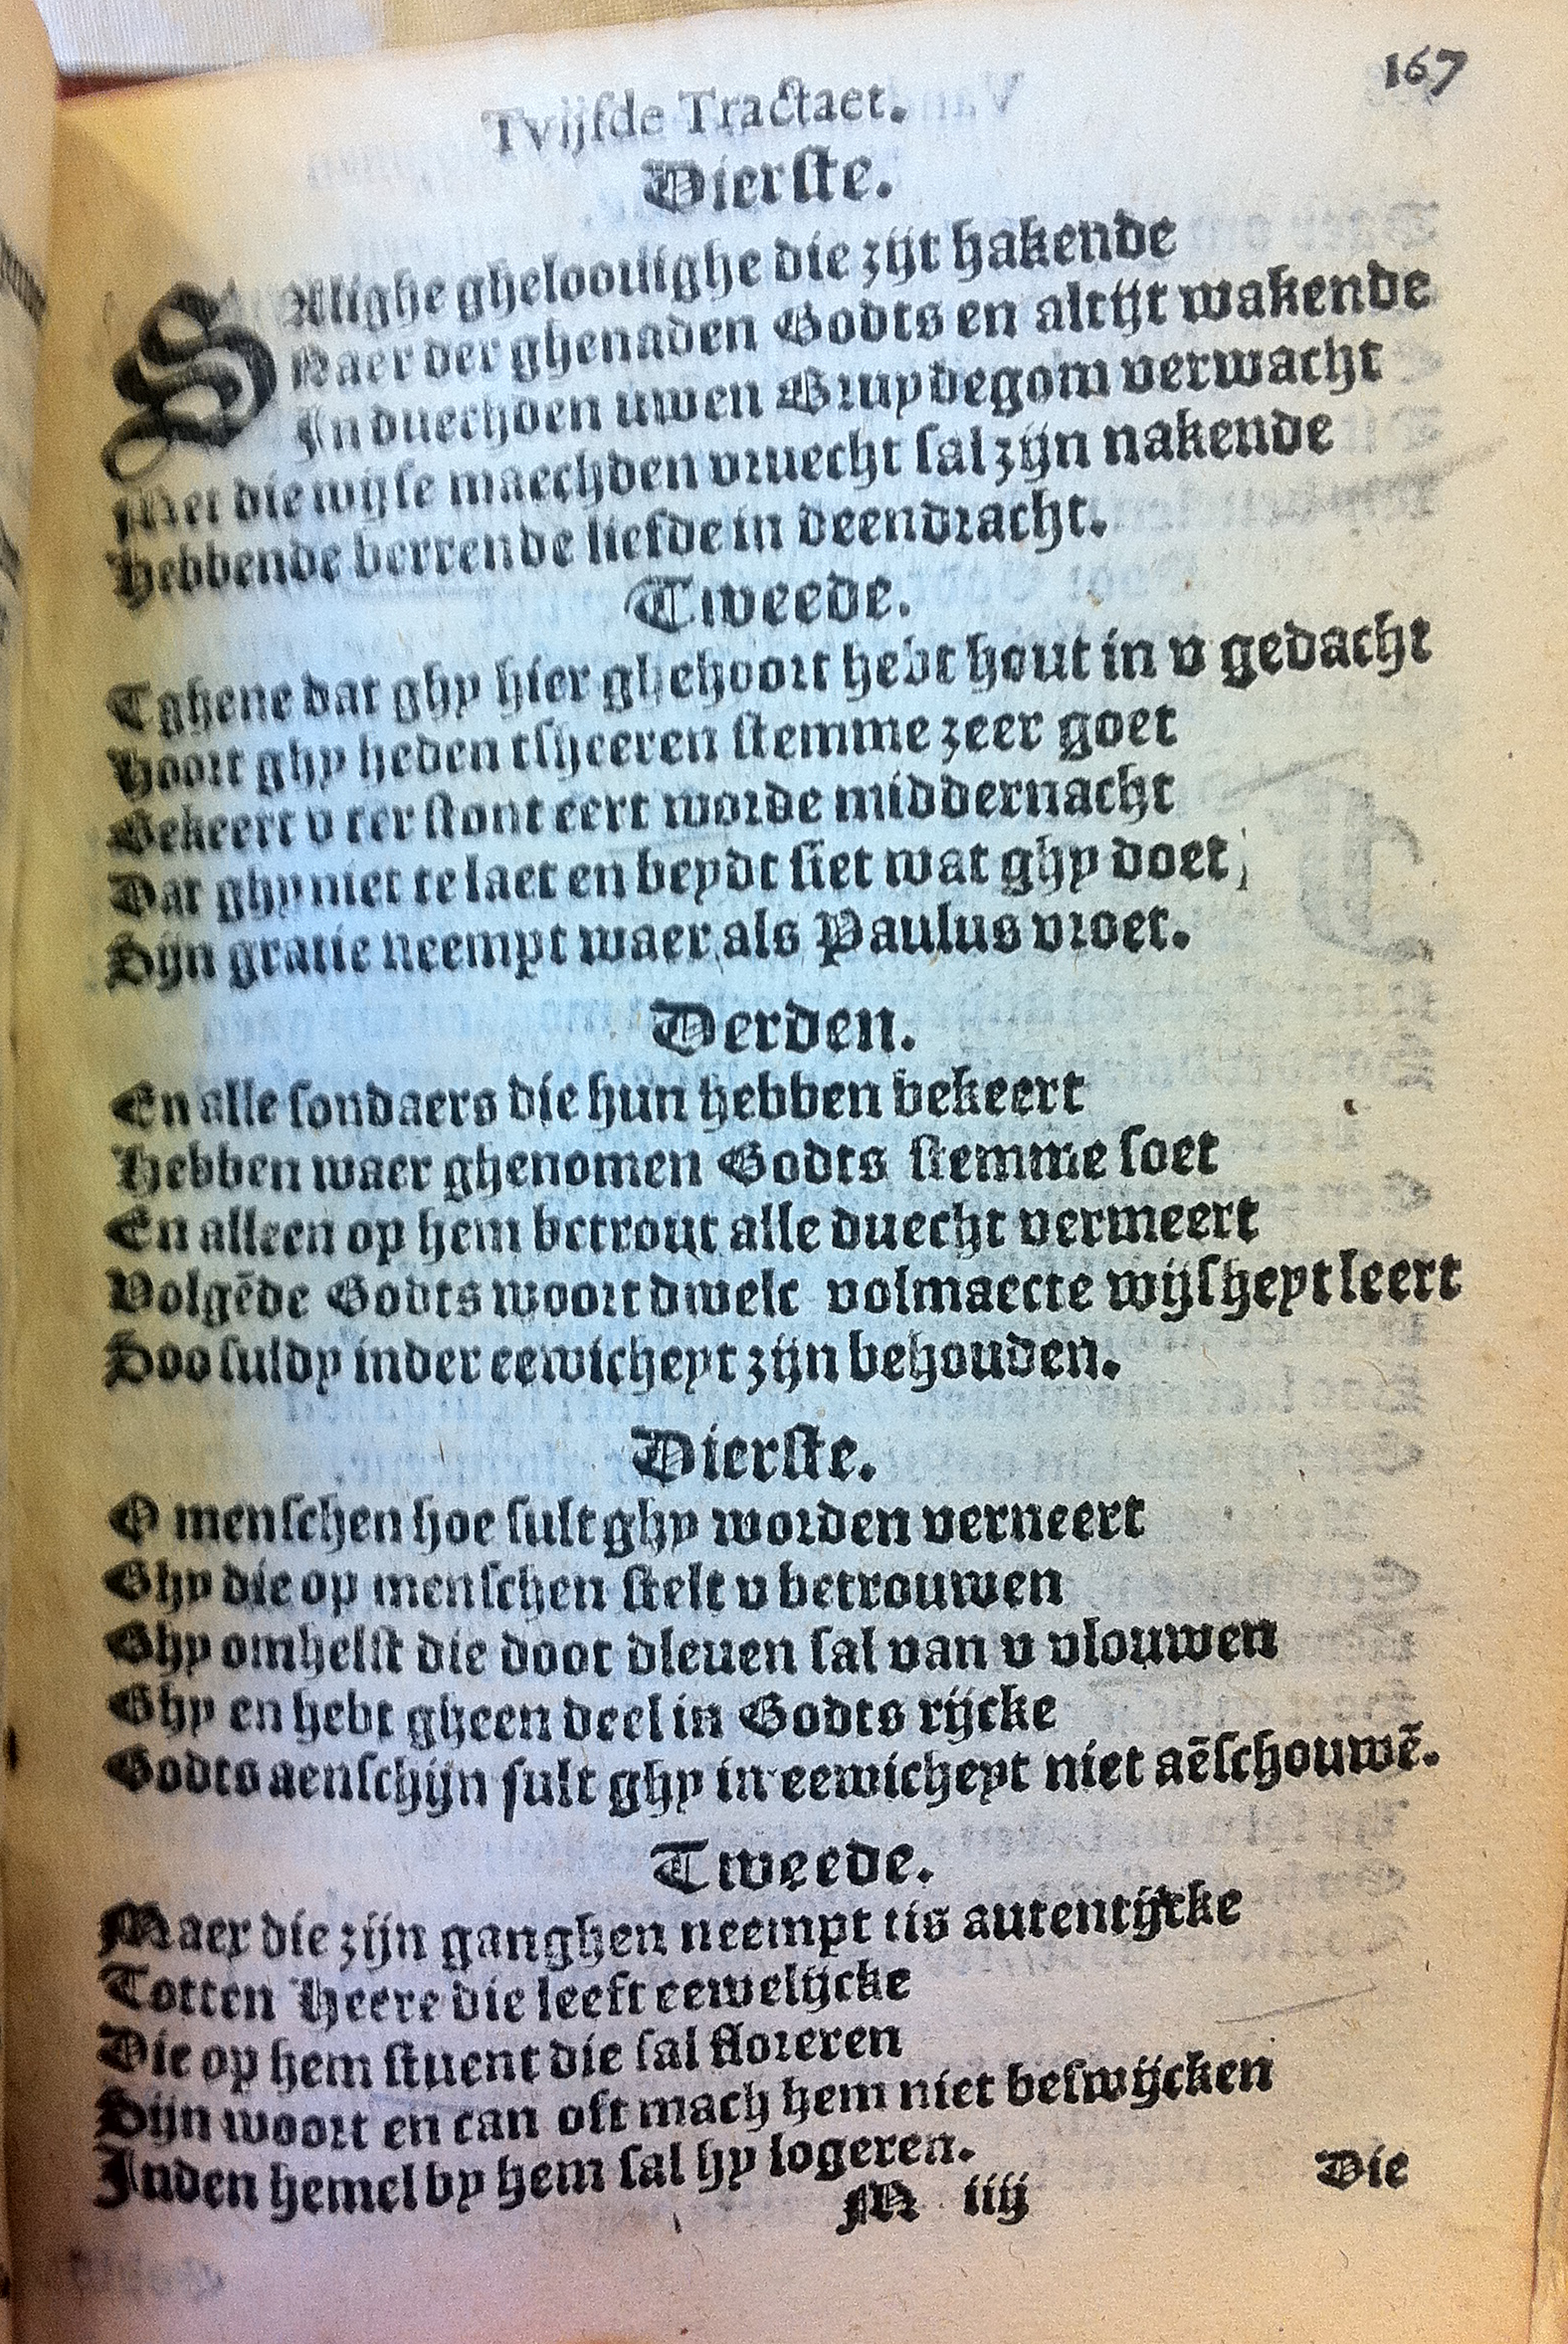 167
Tvijfde Tractaet.
Dierste.
SAlighe gheloouighe die zijt hakende
Naer der ghenaden Godts en altijt wakende
In duechden uwen Bruydegom verwacht
Met die wijse maechden vruecht sal zijn nakende
Hebbende berrende liefde in deendracht.
Tweede.
Tghene dat ghy hier ghehoort hebt hout in v gedacht
Hoort ghy heden tsheeren stemme zeer goet
Bekeert v ter stont eert worde middernacht
Dat ghy niet te laet en beydt siet wat ghy doet,
Sijn gratie neempt waer als Paulus vroet.
Derden.
En alle sondaers die hun hebben bekeert
Hebben waer ghenomen Godts stemme soet
En alleen op hem betrout alle duecht vermeert
Volgēde Godts woort dwelc volmaecte wijsheyt leert
Soo suldy inder eewicheyt zijn behouden.
Dierste.
O menschen hoe sult ghy worden verneert
Ghy die op menschen stelt v betrouwen
Ghy omhelst die doot dleuen sal van v vlouwen
Ghy en hebt gheen deel in Godts rijcke
Godts aenschijn sult ghy in eewicheyt niet aēschouwē.
Tweede.
Maer die zijn ganghen neempt tis autentijcke
Totten Heere die leeft eewelijcke
Die op hem stuent die sal floreren
Sijn woort en can oft mach hem niet beswijcken
Inden hemel by hem sal hy logeren.
M iiij
Die